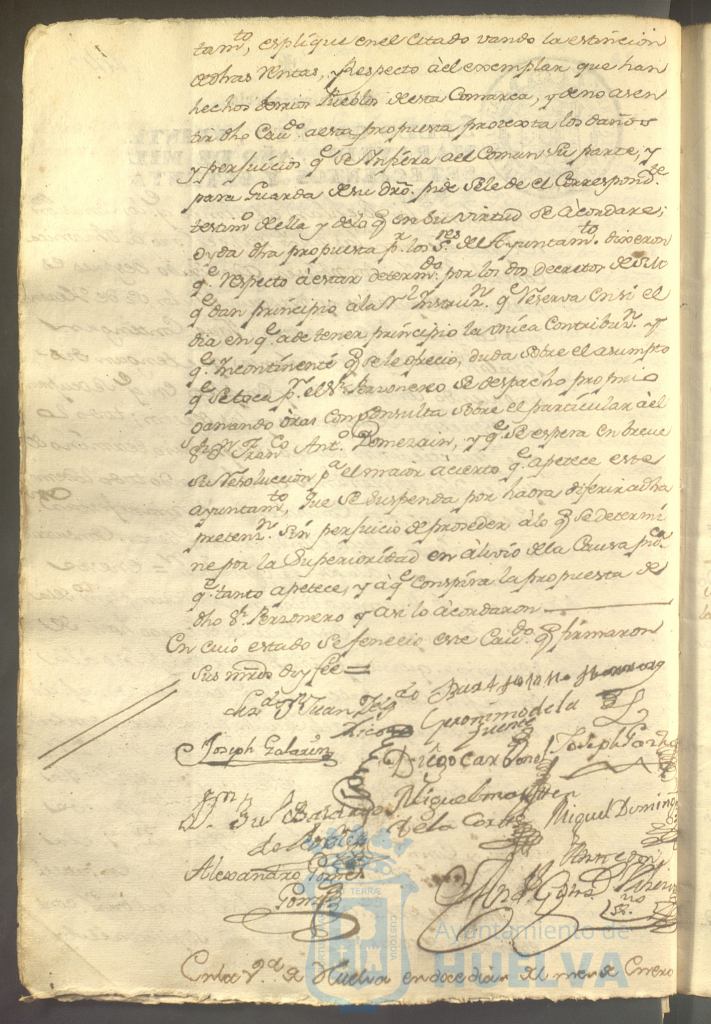 tamto, esplique en el Citado vando la estincion
de dhas Rentas, y Respecto à el exemplar que han
hechos barrios Pueblos de esta Comarca, y de no asen
tir dho Cavdo. a esta propuesta protexta los daños
y perjuicios qe. Se Infiera a el Comun Su parte, y
para Guarda de su dro. pide Se le de el Correspondte
testimo de ella y de lo q en Su virtud Se acordare;
oyda dha propuesta pr. los Sres. del Ayuntamto. dixeron
qe. respecto à estar determdo. por los dos decretos de S.M.
qe dan principio à la Rl Instruzn. qe Reserva en si el
dia en qe. a de tener principio la unica Contribuzn. y
qe. Incontinenti q Se le ofrecio, duda sobre el asumpto
qe Se toca pr. el Sr. Perzonero Se despacho proprio
ganando oras Con Consulta Sobre el particular à el
Sr. Dn. Franco Anto. Domezain, y qe Se espera en breve
Su Resoluccion pa el maior acierto qe. apetece este
ayuntamto, Que Se Suspenda por haora diferir a dha
pretenzn. Sin perjuicio de proseder à lo q Se determi
ne por la Superioridad en àlivio de la Causa pca.
qe. tanto apetece, y à qe Conspira la propuesta de
dho Sr. Perzonero y asi lo acordaron
En cuio estado Se fenecio este Cavdo. q firmaron
Sus mrds doy fee =
Juan
Geronimo de la
fuente
Joseph Galarin
Diego Carbonel Joseph Garza
Miguel martin
de la Corte
Miguel Doming
Alexandro Gomez
TERRAE
CUSTODIA
Ayuntamiento de
HUELVA
En la Va. de Huelva en doce dias del mes de Enero